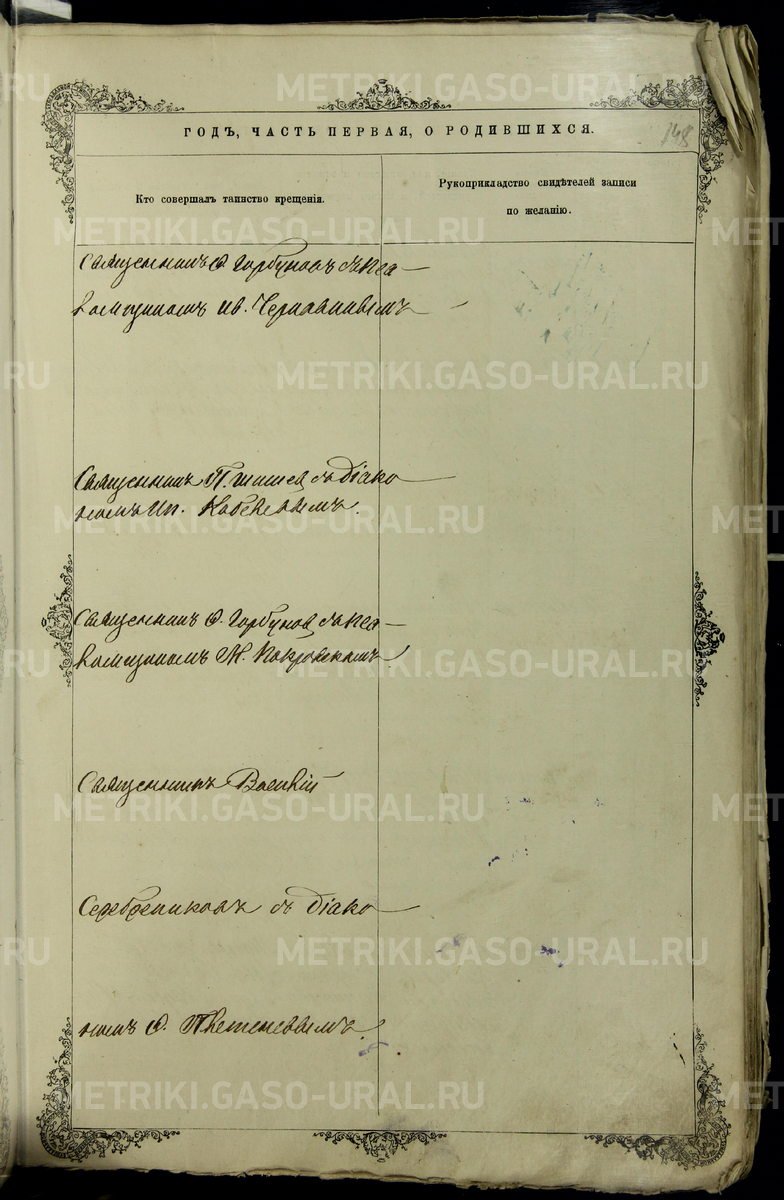 ГОДЪ, ЧАСТЬ ПЕРВАЯ, О РОДИВШИХСЯ.
148
Кто совершалъ таинство крещенія.
Рукоприкладство свидѣтелей записи
по желанію.
Священникъ Ѳ. Горбуновъ съ пса-
ломщикомъ Ив.
Священникъ П. съ Діако
номъ Ип.
Священникъ Ѳ. Горбуновъ съ пса-
ломщикомъ М. Покровскимъ
Священникъ
Серебрениковъ съ Діако
номъ Ѳ.
METRIKI.GASO-URAL.RU